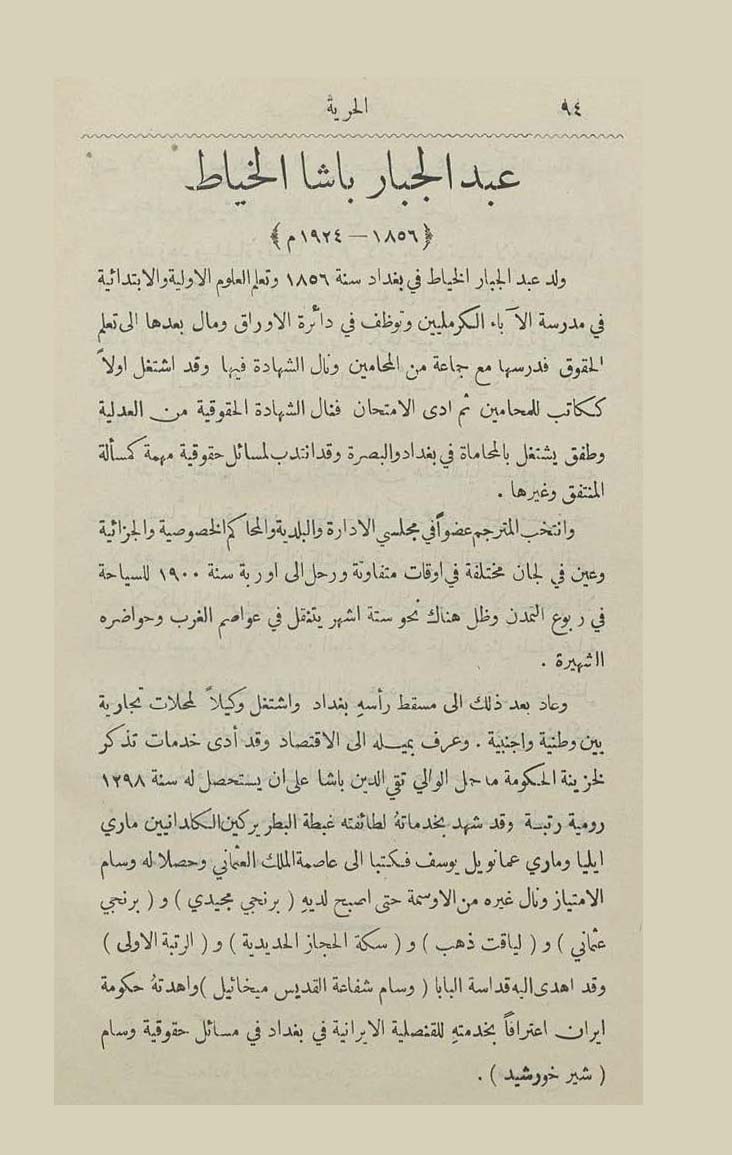 ٩٤ الحرية
عبد الجبار باشا الخياط
﴿١٨٥٦ – ١٩٢٤ م﴾
ولد عبد الجبار الخياط في بغداد سنة ١٨٥٦ وتعلم العلوم الاولية والابتدائية
في مدرسة الآباء الكرمليين وتوظف في دائرة الاوراق ومال بعدها الى تعلم
الحقوق فدرسها مع جماعة من المحامين ونال الشهادة فيها وقد اشتغل اولاً
ككاتب للمحامين ثم ادى الامتحان فنال الشهادة الحقوقية من العدلية
وطفق يشتغل بالمحاماة في بغداد والبصرة وقد انتدب لمسائل حقوقية مهمة كمسألة
المنتفق وغيرها .
وانتخب المترجم عضواً في مجلسي الادارة والبلدية والمحاكم الخصوصية والجزائية
وعين في لجان مختلفة في اوقات متفاوتة ورحل الى اوربة سنة ١٩٠٠ للسياحة
في ربوع التمدن وظل هناك نحو ستة اشهر يتنقل في عواصم الغرب وحواضره
الشهيرة .
وعاد بعد ذلك الى مسقط رأسهِ بغداد واشتغل وكيلاً لمحلات تجارية
بين وطنية واجنبية . وعرف بميله الى الاقتصاد وقد أدى خدمات تذكر
لخزينة الحكومة ما حمل الوالي تقي الدين باشا على ان يستحصل له سنة ١٢٩٨
رومية رتبة وقد شهد بخدماتهُ لطائفته غبطة البطريركين الكلدانيين ماري
ايليا وماري عمانويل يوسف فكتبا الى عاصمة الملك العثماني وحصلا له وسام
الامتياز ونال غيره من الاوسمة حتى اصبح لديهِ ( برنجي مجيدي ) و ( برنجي
عثماني ) و ( لياقت ذهب ) و ( سكة الحجاز الحديدية ) و ( الرتبة الاولى )
وقد اهدى اليه قداسة البابا ( وسام شفاعة القديس ميخائيل ) واهدتهُ حكومة
ايران اعترافاً بخدمتهِ للقنصلية الايرانية في بغداد في مسائل حقوقية وسام
( شير خورشيد ) .